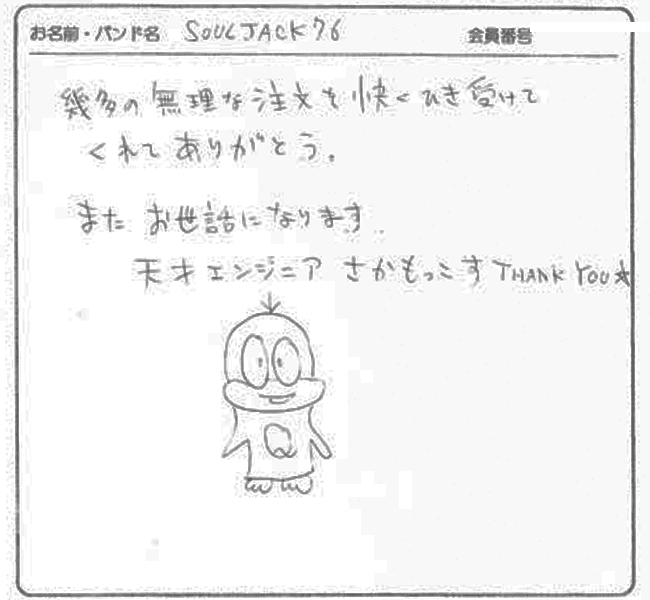 お名前・バンド名 SOULJACK76 会員番号
幾多の無理な注文を快くひき受けて
くれてありがとう。
またお世話になります。
天才エンジニア さかもっこす THANK YOU★